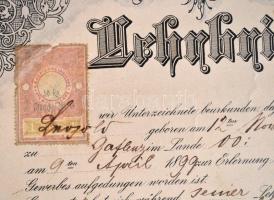 Lehrbri
wir Unterzeichnete beurkunden, da
Leopold geboren am 12ten Nov
zu Gaflenz im Lande OÖ:
am 9ten April 1899 zur Erlernung
Gewerbes aufgedungen worden ist.
während seiner Leh